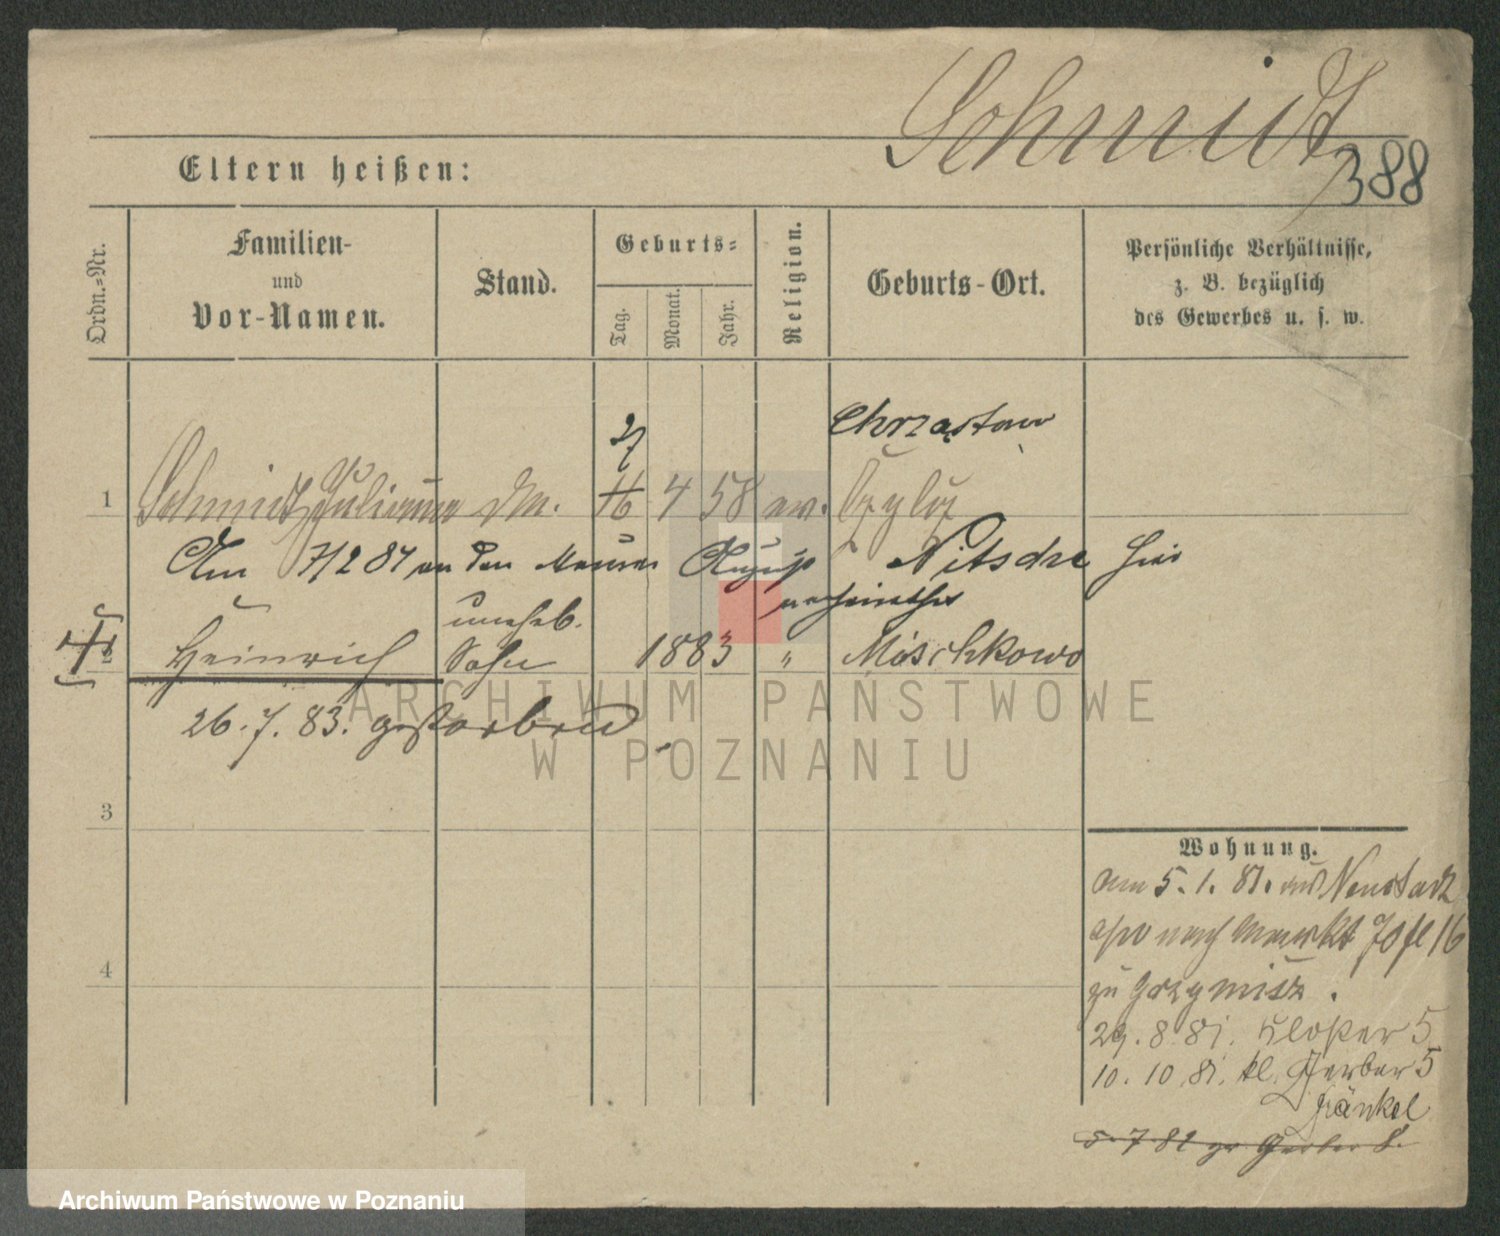 Schmidt
388
Eltern heißen:
Ordn.=Nr.
Familien-
und
Vor-Namen.
Stand.
Geburts=
Tag.
Monat.
Jahr.
Religion.
Geburts-Ort.
Persönliche Verhältnisse,
z. B. bezüglich
des Gewerbes u. s. w.
Chrząstow
27
1 Schmidt Julianna dM. 16 4 58 ev.
Am 7/2 84 an den Maurer August Nitsche hier
verheirathet
unehel.
2 Heinrich Sohn 1883 " Mischkowo
26.7.83. gestorben
ARCHIWUM PAŃSTWOWE
W POZNANIU
3
4
Wohnung.
Am 5.1.81. aus Neustadt
nach Markt 70 16
zu Grzymisz.
29.8.81. Kloster 5
10.10.81. kl. Gerber 5
Fränkel
5.7 82 gr Gerber 8.
Archiwum Państwowe w Poznaniu